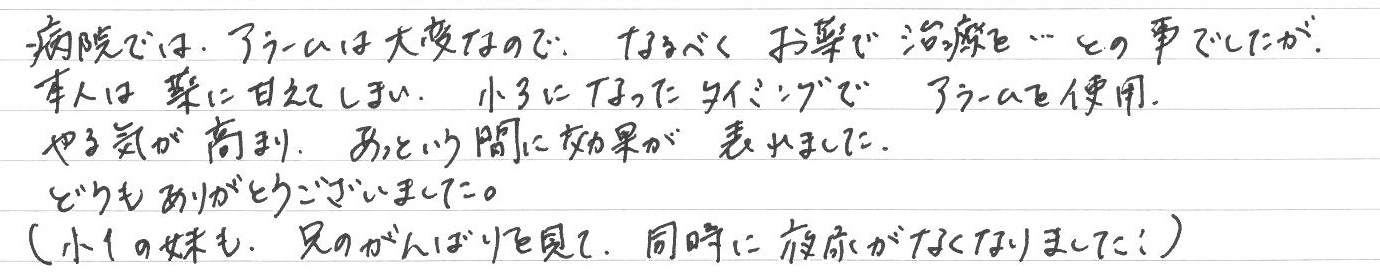 病院では、アラームは大変なので、なるべく お薬で 治療を… との事でしたが、
本人は 薬に甘えてしまい、小3になったタイミングで アラームを使用。
やる気が高まり、あっという間に効果が 表れました。
どうもありがとうございました。
(小1の妹も、兄のがんばりを見て、同時に夜尿がなくなりました!)